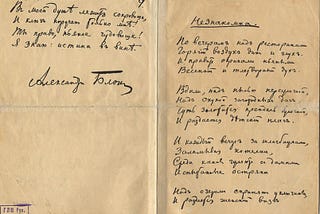 Въ моей душѣ лежитъ сокровище,
И ключъ порученъ только мнѣ!
Ты право, пьяное чудовище!
Я знаю: истина въ винѣ.
Александръ Блокъ
Незнакомка.
По вечерамъ надъ ресторанами
Горячій воздухъ дикъ и глухъ,
И правитъ окриками пьяными
Весенній и тлетворный духъ.
Вдали, надъ пылью переулочной,
Надъ скукой загородныхъ дачъ,
Чуть золотится крендель булочной,
И раздается дѣтскій плачъ.
И каждый вечеръ, за шлагбаумами,
Заламывая котелки,
Среди канавъ гуляютъ съ дамами
Испытанные остряки.
Надъ озеромъ скрипятъ уключины,
И раздается женскій визгъ